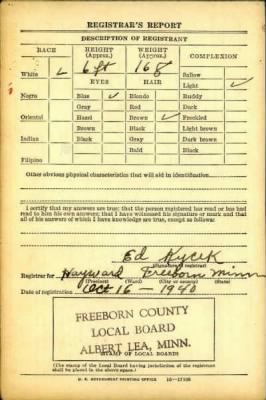 REGISTRAR'S REPORT
DESCRIPTION OF REGISTRANT
RACE HEIGHT (Approx.) WEIGHT (Approx.) COMPLEXION
White ✓ 6 ft 168 Sallow
EYES HAIR Light ✓
Negro Blue ✓ Blonde Ruddy
Gray Red Dark
Oriental Hazel Brown ✓ Freckled
Brown Black Light brown
Indian Black Gray Dark brown
Bald Black
Filipino
Other obvious physical characteristics that will aid in identification
I certify that my answers are true; that the person registered has read or has had
read to him his own answers; that I have witnessed his signature or mark and that
all of his answers of which I have knowledge are true, except as follows:
Ed Kycek
(Signature of registrar)
Registrar for Hayward Freeborn Minn
(Precinct) (Ward) (City or county) (State)
Date of registration Oct 16 - 1940
FREEBORN COUNTY
LOCAL BOARD
ALBERT LEA, MINN.
(STAMP OF LOCAL BOARD)
(The stamp of the Local Board having jurisdiction of the registrant
shall be placed in the above space.)
U. S. GOVERNMENT PRINTING OFFICE 16-17105